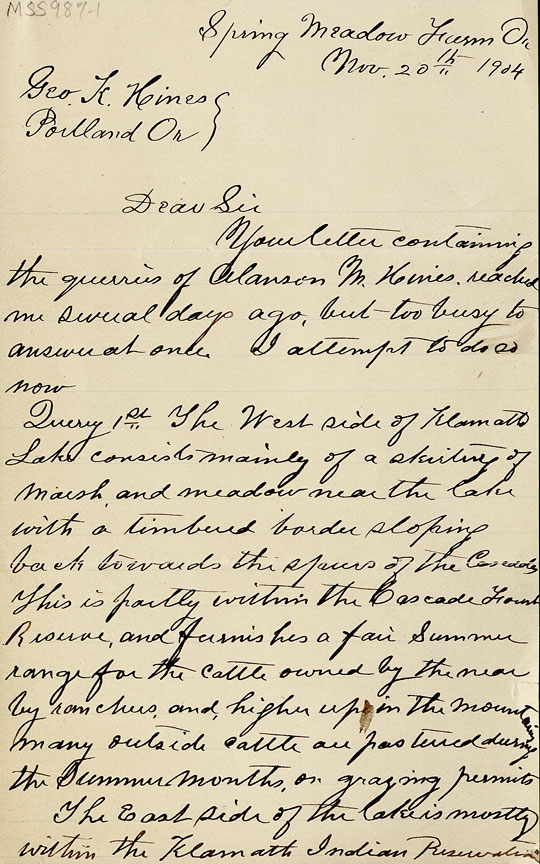 MSS987-1
Spring Meadow Farm Or
Nov. 20th 1904
Geo. K. Hines
Portland Or
Dear Sir
Your letter containing
the querries of Alanson M. Hines. reached
me several days ago, but too busy to
answer at once. I attempt to do so
now
Query 1st The West side of Klamath
Lake consists mainly of a skirting of
marsh and meadow near the lake
with a timbered border sloping
back towards the spurs of the Cascades
This is partly within the Cascade Forest
Reserve, and furnishes a fair Summer
range for the cattle owned by the near
by ranchers, and, higher up, in the mountains
many outside cattle are pastured during
the Summer months, on grazing permits
The East side of the lake is mostly
within the Klamath Indian Reservation